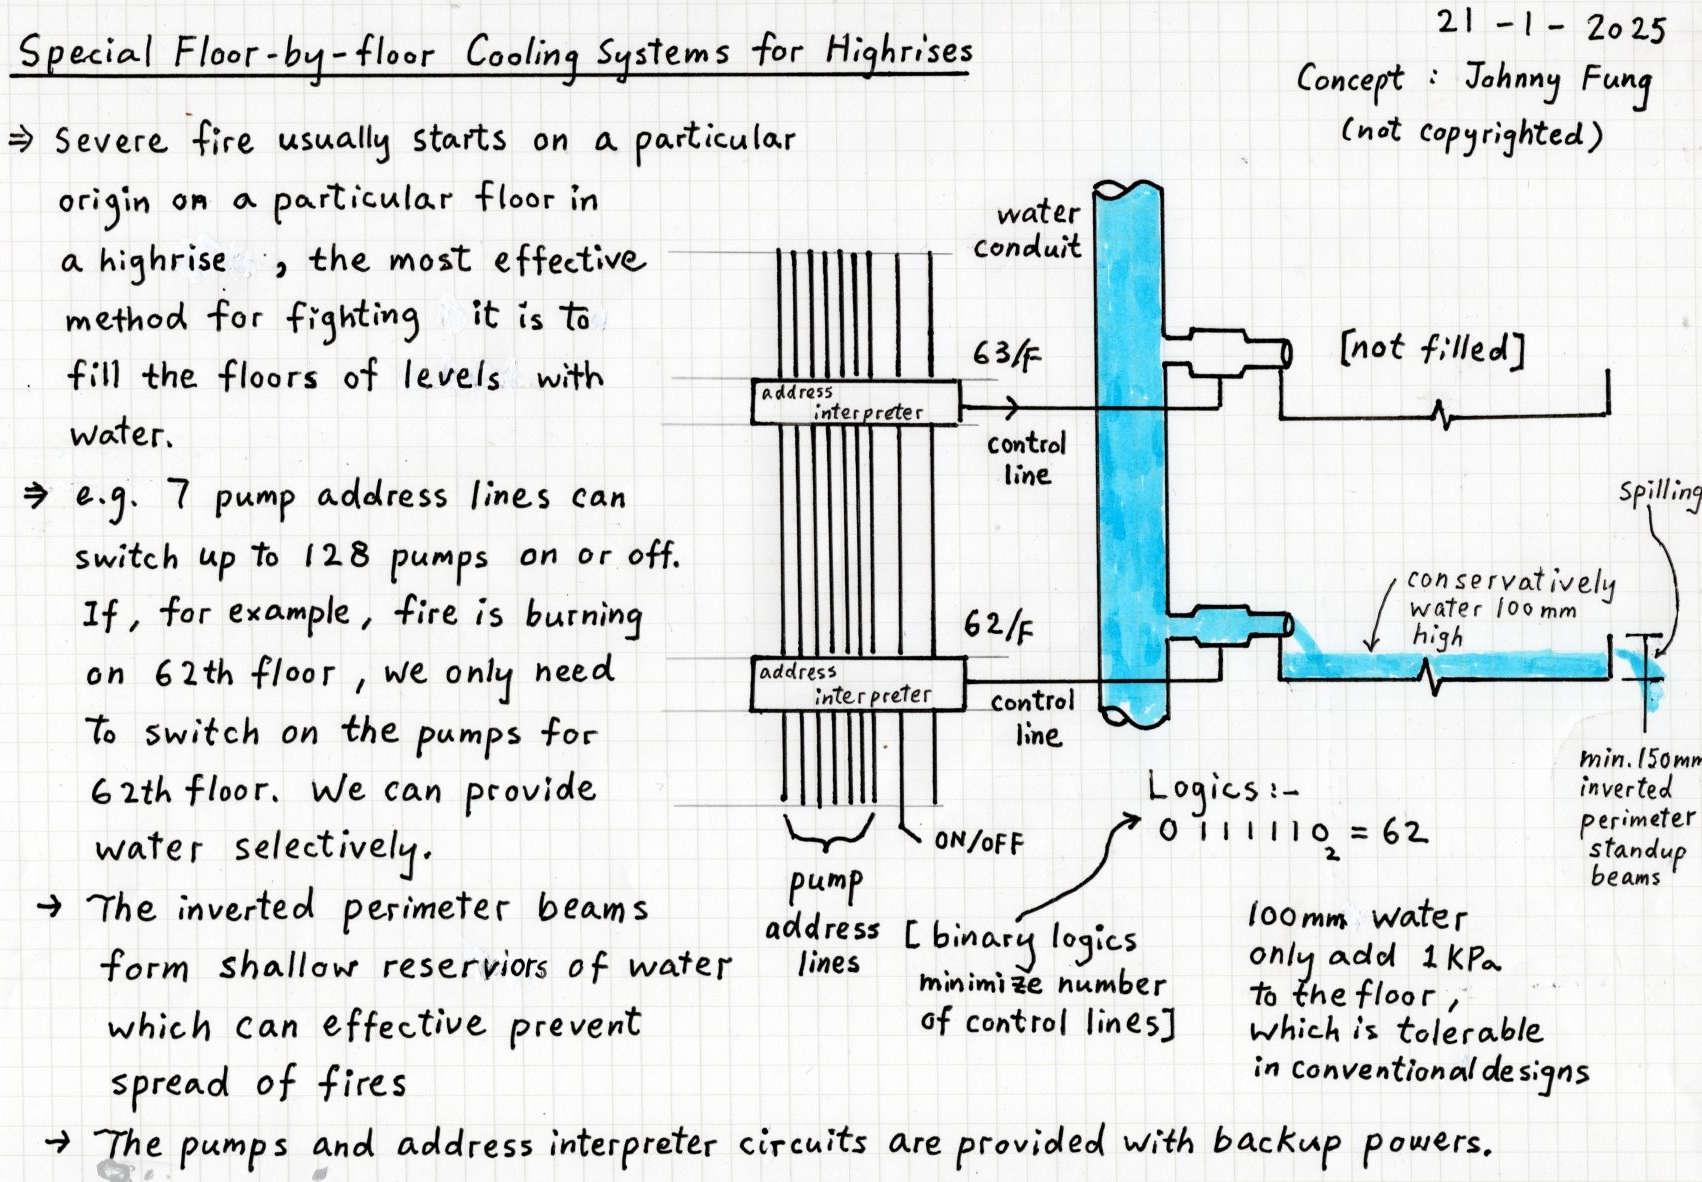 21-1-2025
Special Floor-by-floor Cooling Systems for Highrises
Concept : Johnny Fung
(not copyrighted)
⇒ Severe fire usually starts on a particular
origin on a particular floor in
a highrise , the most effective
method for fighting it is to
fill the floors of levels with
water.
⇒ e.g. 7 pump address lines can
switch up to 128 pumps on or off.
If, for example, fire is burning
on 62th floor, we only need
to switch on the pumps for
62th floor. We can provide
water selectively.
→ The inverted perimeter beams
form shallow reserviors of water
which can effective prevent
spread of fires
→ The pumps and address interpreter circuits are provided with backup powers.
water
conduit
63/F
[not filled]
address
interpreter
control
line
spilling
conservatively
water 100mm
high
62/F
address
interpreter
control
line
min. 150mm
inverted
perimeter
standup
beams
Logics :-
0111110₂ = 62
ON/OFF
pump
address
lines
[ binary logics
minimize number
of control lines]
100mm water
only add 1KPa
to the floor,
which is tolerable
in conventional designs